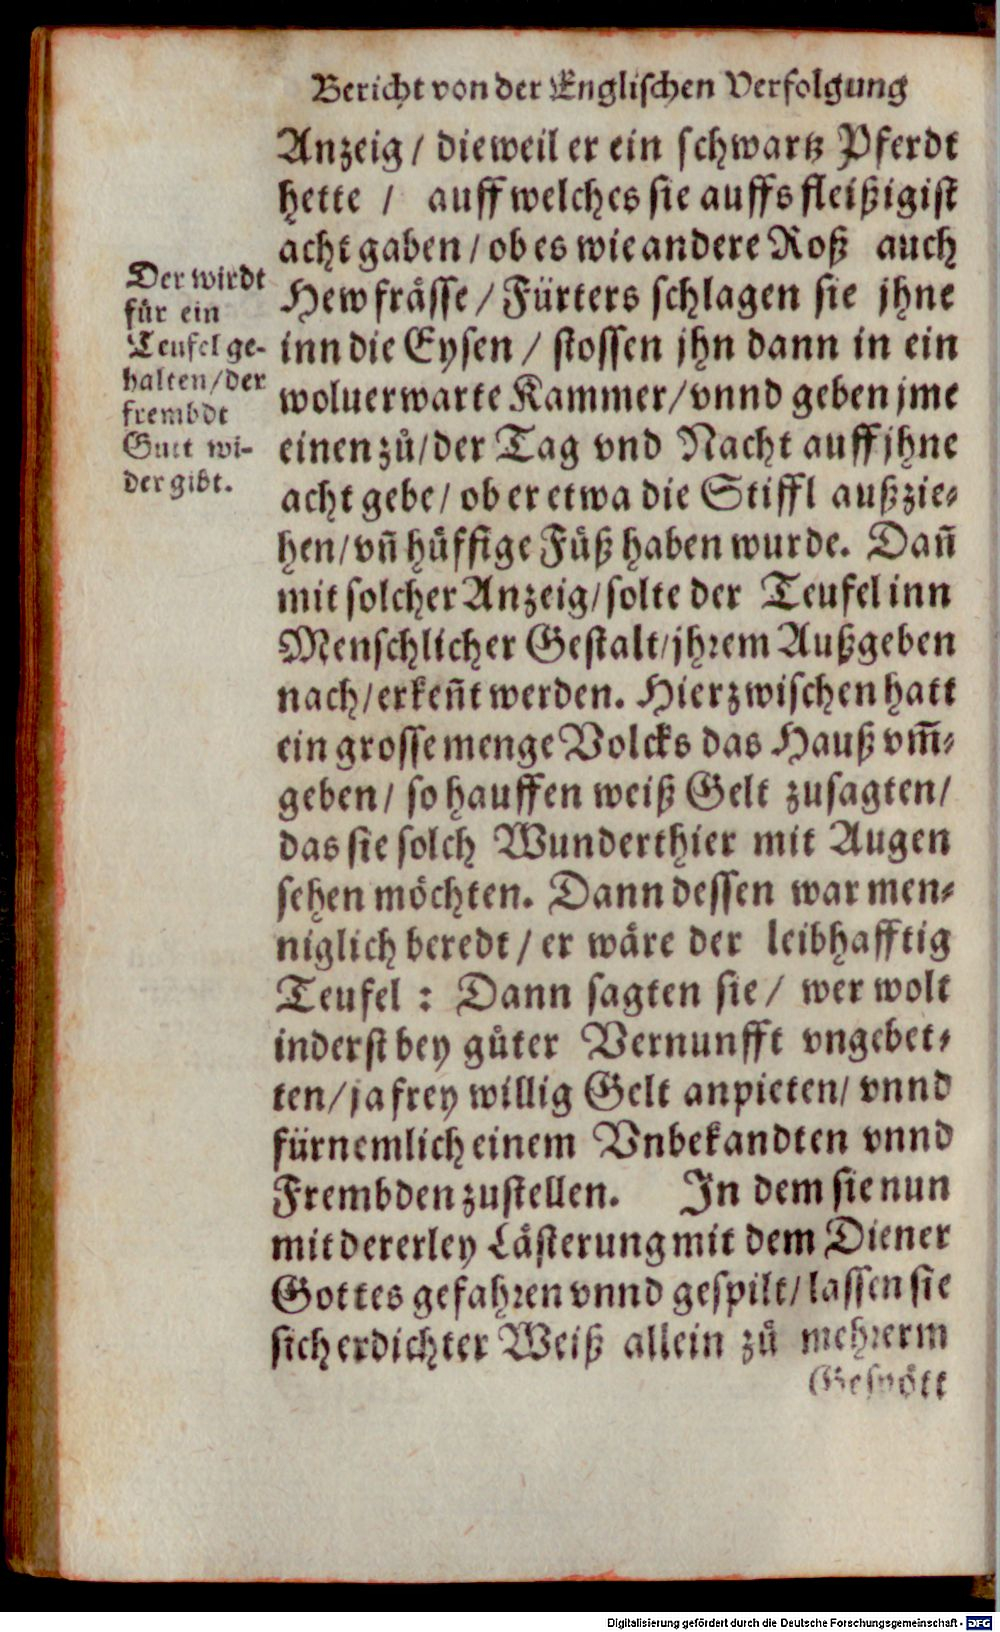 Bericht von der Englischen Verfolgung
Anzeig / dieweil er ein schwartz Pferdt
hette / auff welches sie auffs fleißigist
acht gaben / ob es wie andere Roß auch
Hew frässe / Fürters schlagen sie jhne
inn die Eysen / stossen jhn dann in ein
woluerwarte Kammer / vnnd geben jme
einen zů / der Tag vnd Nacht auff jhne
acht gebe / ob er etwa die Stiffl außzie⸗
hen / vñ hüffige Füß haben wurde. Dañ
mit solcher Anzeig / solte der Teufel inn
Menschlicher Gestalt / jhrem Außgeben
nach / erkeñt werden. Hierzwischen hatt
ein grosse menge Volcks das Hauß vm̃⸗
geben / so hauffen weiß Gelt zusagten /
das sie solch Wunderthier mit Augen
sehen möchten. Dann dessen war men⸗
niglich beredt / er wäre der leibhafftig
Teufel : Dann sagten sie / wer wolt
inderst bey gůter Vernunfft vngebet⸗
ten / ja frey willig Gelt anpieten / vnnd
fürnemlich einem Vnbekandten vnnd
Frembden zustellen. In dem sie nun
mit dererley Lästerung mit dem Diener
Gottes gefahren vnnd gespilt / lassen sie
sich erdichter Weiß allein zů mehrerm
Gespött
Der wirdt
für ein
Teufel ge-
halten / der
frembdt
Gutt wi-
der gibt.
Digitalisierung gefördert durch die Deutsche Forschungsgemeinschaft - DFG